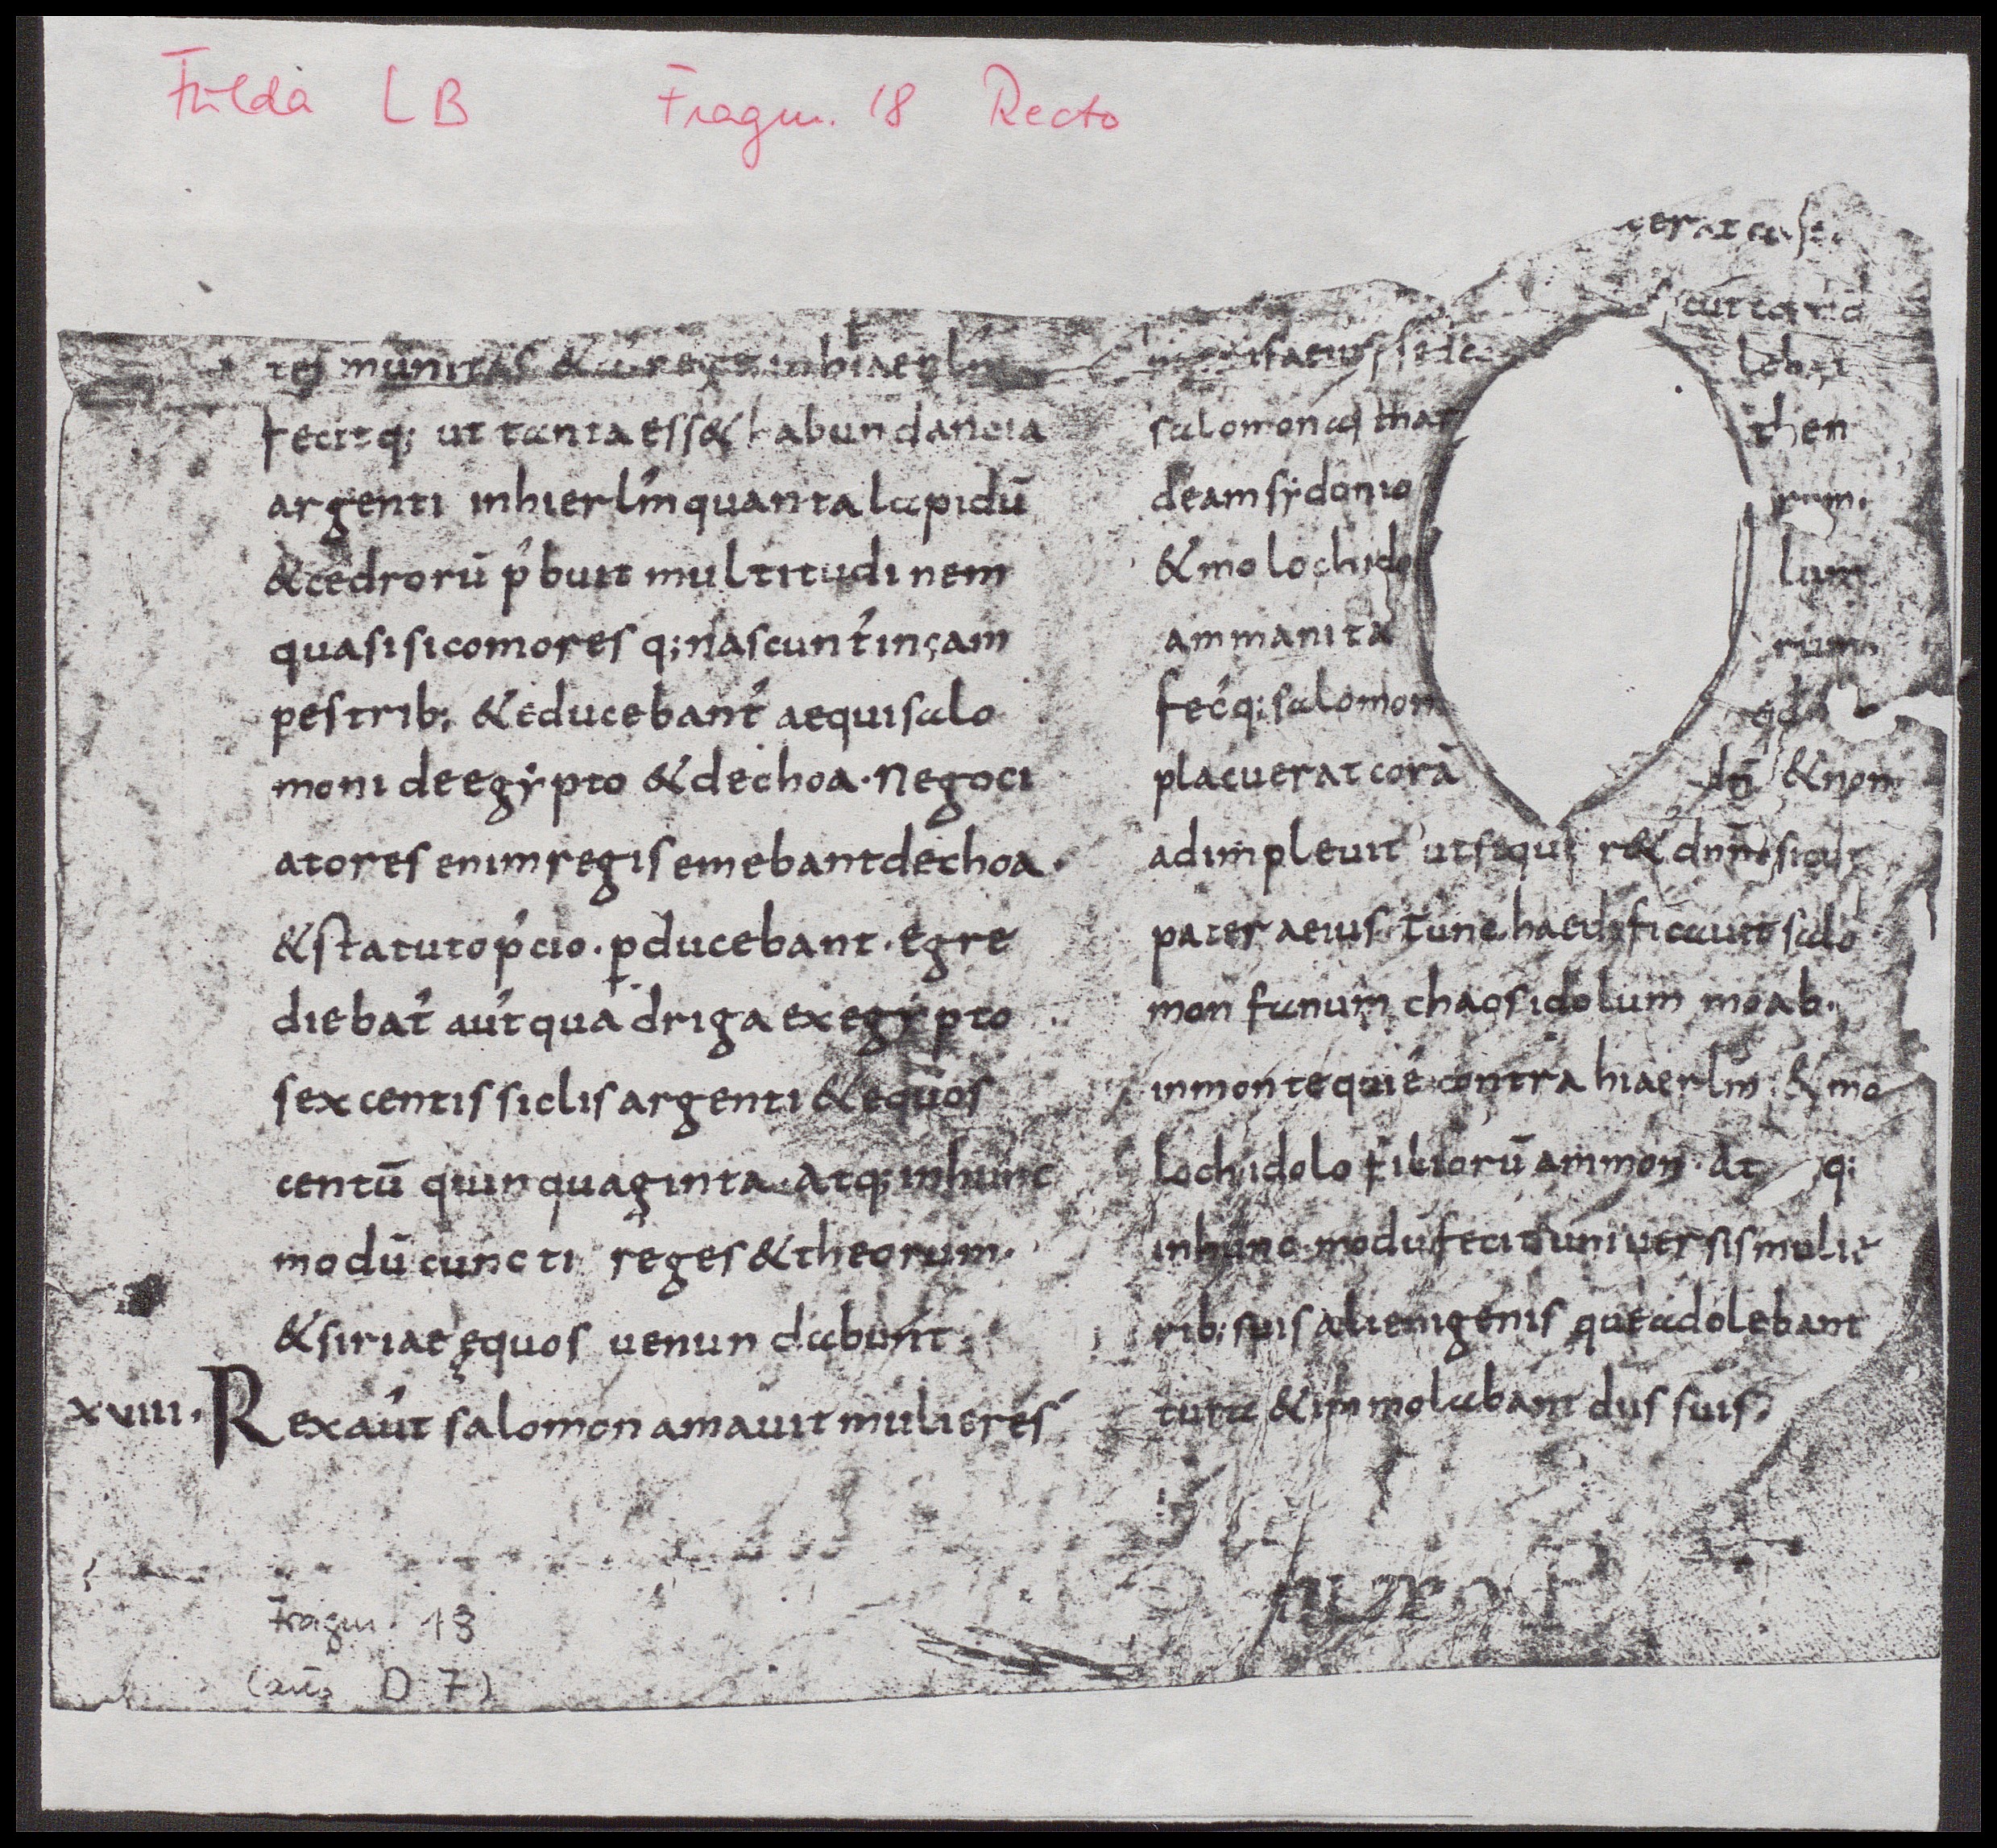 Fulda LB Fragm. 18 Recto
tes munitas & cũ rege in hiaerlm̅
fecitq; ut tanta ess& habundancia
argenti inhierlm̅ quanta lapidū
& cedrorū p̄buit multitudinem
quasi sicomores q; nascunt᷑ incam
pestrib; & educebant᷑ aequi salo
moni deegẏpto & dechoa · Negoci
atores enim regis emebant dechoa ·
& statuto p̄cio · pducebant · Egre
diebat᷑ aut̅ quadriga exegẏpto
sex centis siclis argenti & equos
centū quinquaginta · Atq; inhunc
modū cuncti reges & theorum ·
& siriae ęquos uenundabunt ·
xviii · Rex aut̅ salomon amauit mulieres
cerat
sicut
aeius sed
lebat
salomon asthar then
deam sẏdonio rum ·
& moloch ido lum
ammanita rum ·
fec̅q; salomon qd
placuerat corā dn̅o & non
adimpleuit ut sequer& dn̅m sicut
pater aeius · Tunc haedificauit salo
mon fanum chaos idolum moab ·
inmonte qui ē contra hiaerlm̅ · & mo
loch idolo filiorū ammon · At q;
inhunc modū fecit uniuersis mulie
rib; suis alienigenis que adolebant
tura & immolabant diis suis ·
Fragm. 18
(aus D 7)